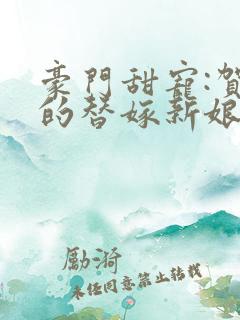 豪門甜寵:賀
的替嫁新娘
勵漪
未經同意禁止轉載